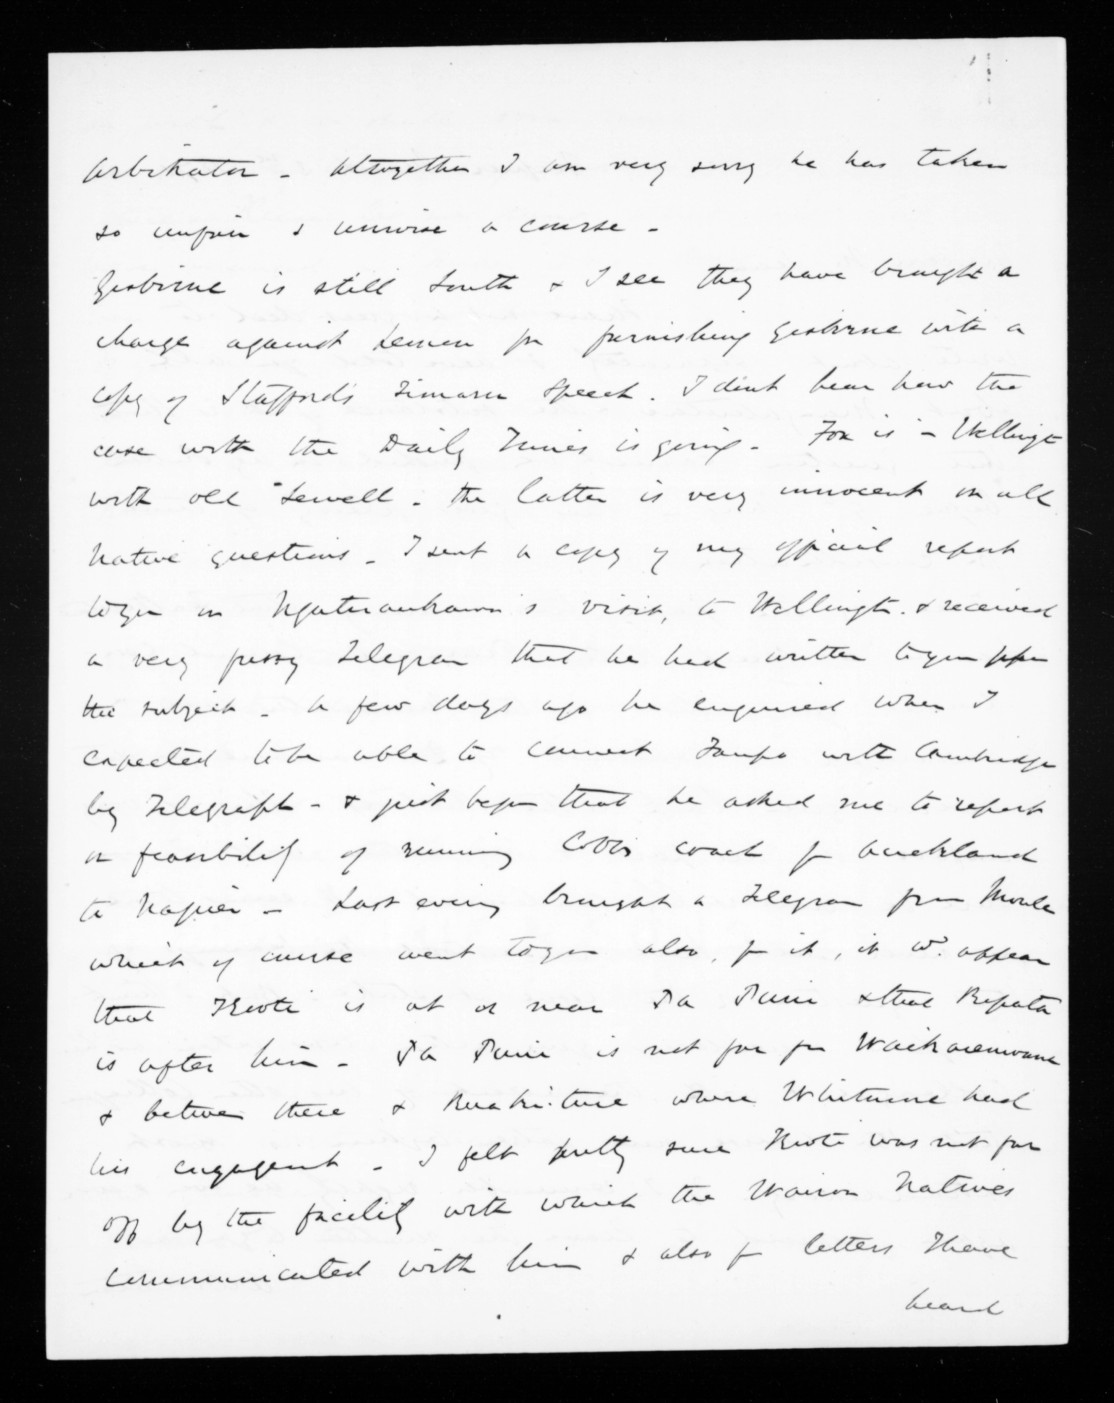 Arbitrator - Altogether I am very sorry he has taken
so unfair & unwise a course -
Gisborne is still South & I see they have brought a
charge against Lemon for furnishing Gisborne with a
copy of Stafford's Timaru speech. I dont hear how the
case with the Daily Times is going. Fox is in Wellingtn
with old Sewell - the latter is very innocent in all
Native questions - I sent a copy of my official report
to you on 's visit, to Wellington & received
a very fussy Telegram that he had written to you upon
the subject - A few days ago he enquired when I
expected to be able to connect Taupo with Cambridge
by Telegraph - & just before that he asked me to report
on feasibility of running Cobb's coach fr Auckland
to Napier - Last evening brought a Telegram from
which of course went to you also, fr it, it wd. appear
that Te Kooti is at or near Te Papuni & that Ropata
is after him - is not far fr Waikaremoana
& between there & Ruakituri where Whitmore had
his engagement - I felt pretty sure Kooti was not far
off by the facility with which the Wairoa Natives
communicated with him & also fr letters I have
heard